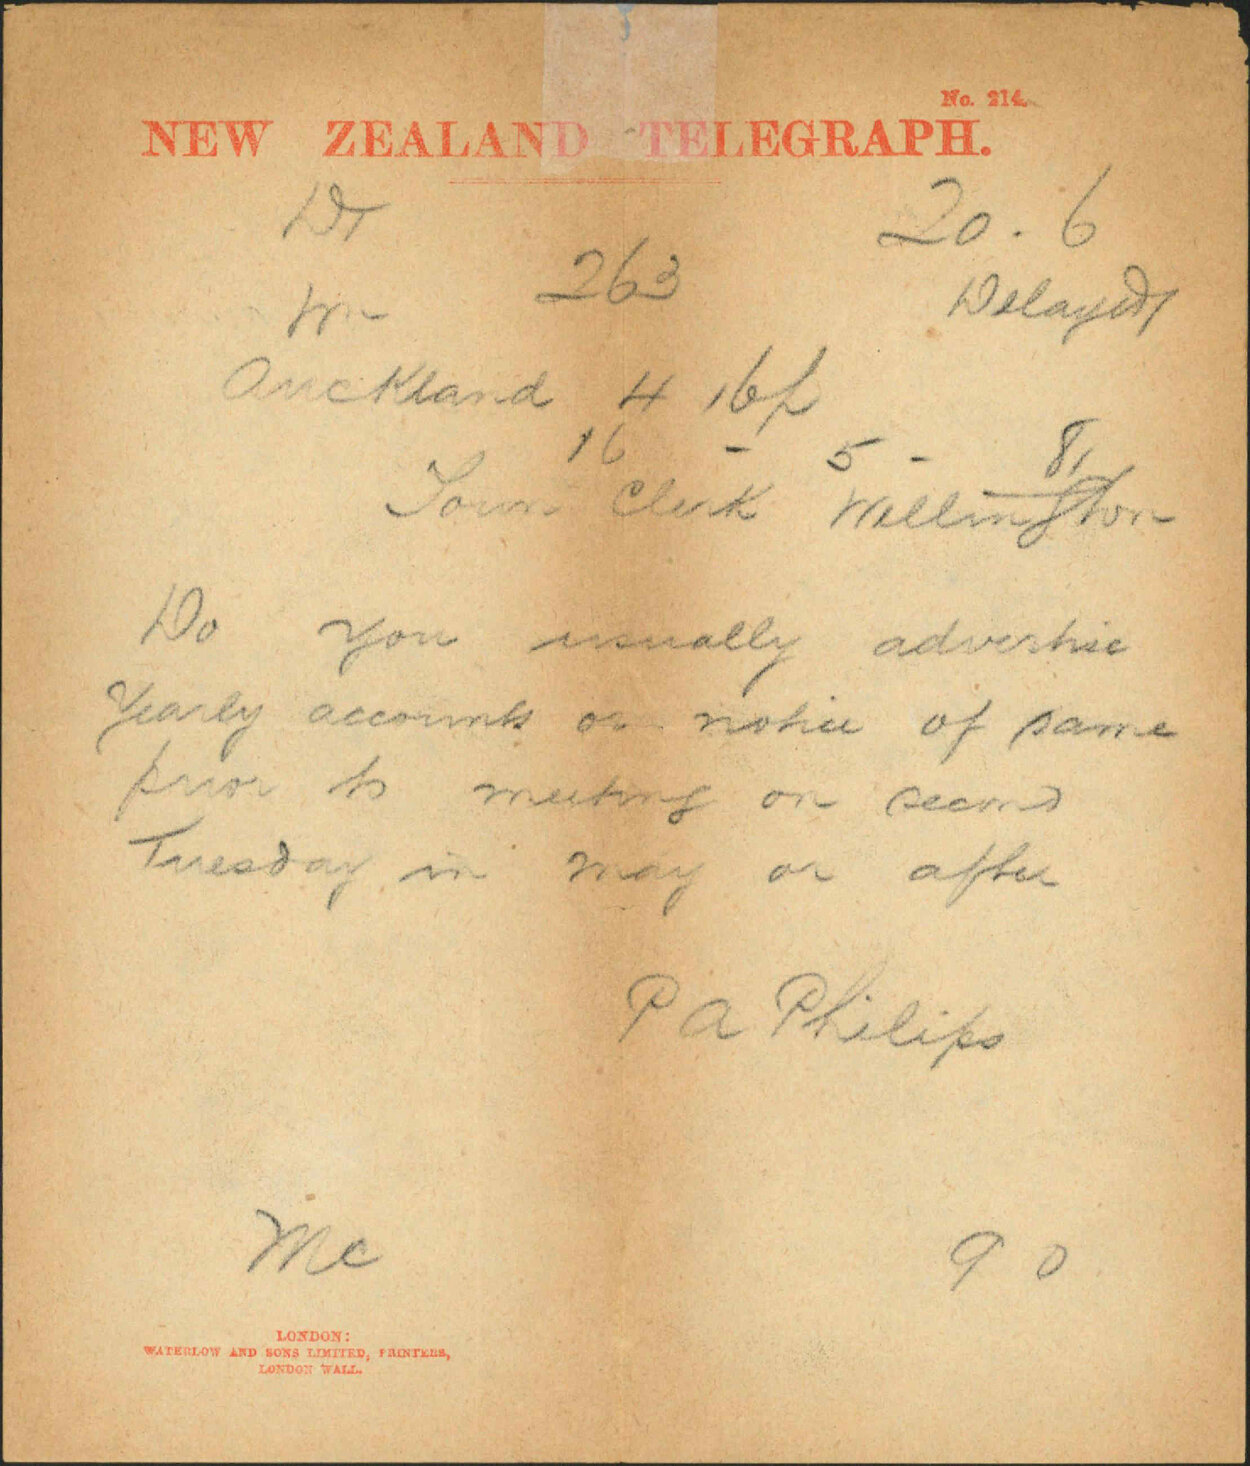 No. 214.
NEW ZEALAND TELEGRAPH.
20.6
263
Delayed
Wn
Auckland 4 16p
16 - 5 - 81
Town Clerk Wellington
Do you usually advertise
Yearly accounts or notice of same
prior to meeting on second
Tuesday in May or after
P A Philips
Mc 9 0
LONDON:
WATERLOW AND SONS LIMITED, PRINTERS,
LONDON WALL.